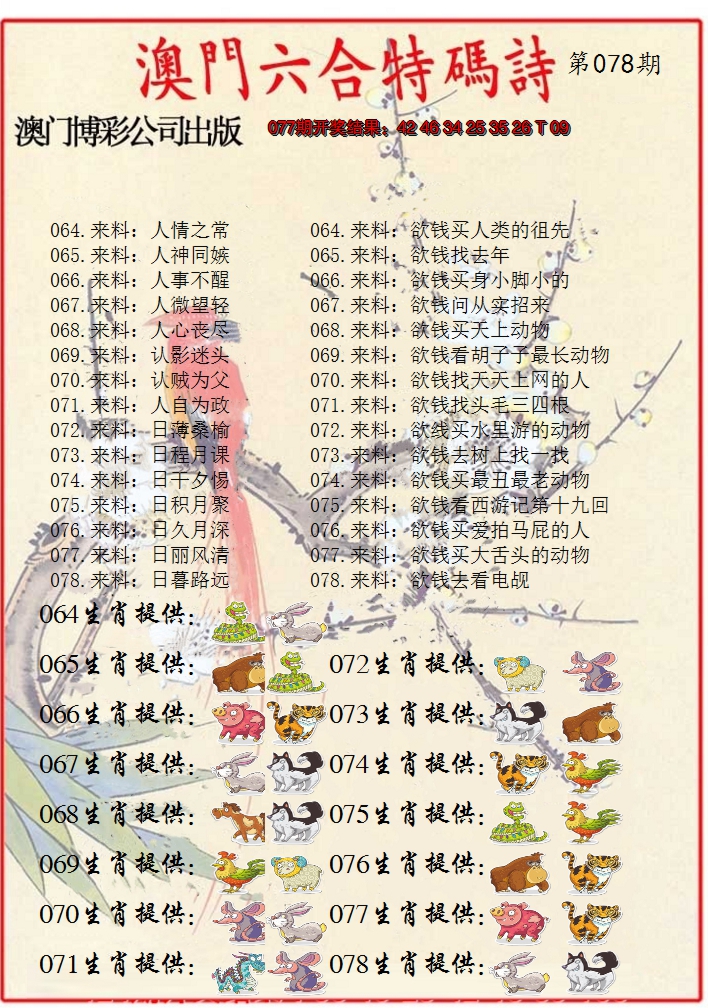 澳門六合特碼詩 第078期
澳门博彩公司出版 077期开奖结果：42 46 34 25 35 26 T 09
064.来料：人情之常 064.来料：欲钱买人类的祖先
065.来料：人神同嫉 065.来料：欲钱找去年
066.来料：人事不醒 066.来料：欲钱买身小脚小的
067.来料：人微望轻 067.来料：欲钱问从实招来
068.来料：人心丧尽 068.来料：欲钱买天上动物
069.来料：认影迷头 069.来料：欲钱看胡子予最长动物
070.来料：认贼为父 070.来料：欲钱找天天上网的人
071.来料：人自为政 071.来料：欲钱找头毛三四根
072.来料：日薄桑榆 072.来料：欲线买水里游的动物
073.来料：日程月课 073.来料：欲钱去树上找一找
074.来料：日干夕惕 074.来料：欲钱买最丑最老动物
075.来料：日积月聚 075.来料：欲钱看西游记第十九回
076.来料：日久月深 076.来料：欲钱买爱拍马屁的人
077.来料：日丽风清 077.来料：欲钱买大舌头的动物
078.来料：日暮路远 078.来料：欲钱去看电觇
064生肖提供：
065生肖提供： 072生肖提供：
066生肖提供： 073生肖提供：
067生肖提供： 074生肖提供：
068生肖提供： 075生肖提供：
069生肖提供： 076生肖提供：
070生肖提供： 077生肖提供：
071生肖提供： 078生肖提供：